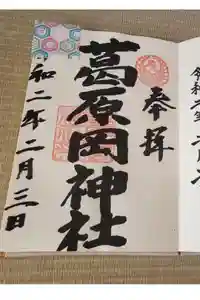 奉拝
葛原岡神社
令和二年二月三日